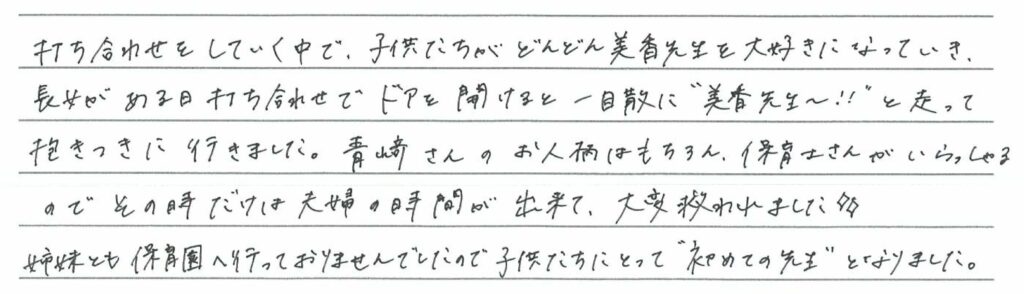 打ち合わせをしていく中で、子供たちがどんどん美香先生を大好きになっていき、
長女がある日打ち合わせでドアを開けると一目散に"美香先生〜!!"と走って
抱きつきに行きました。青崎さんのお人柄はもちろん、保育士さんがいらっしゃる
のでその時だけは夫婦の時間が出来て、大変救われました
姉妹とも保育園へ行っておりませんでしたので子供たちにとって"初めての先生"となりました。